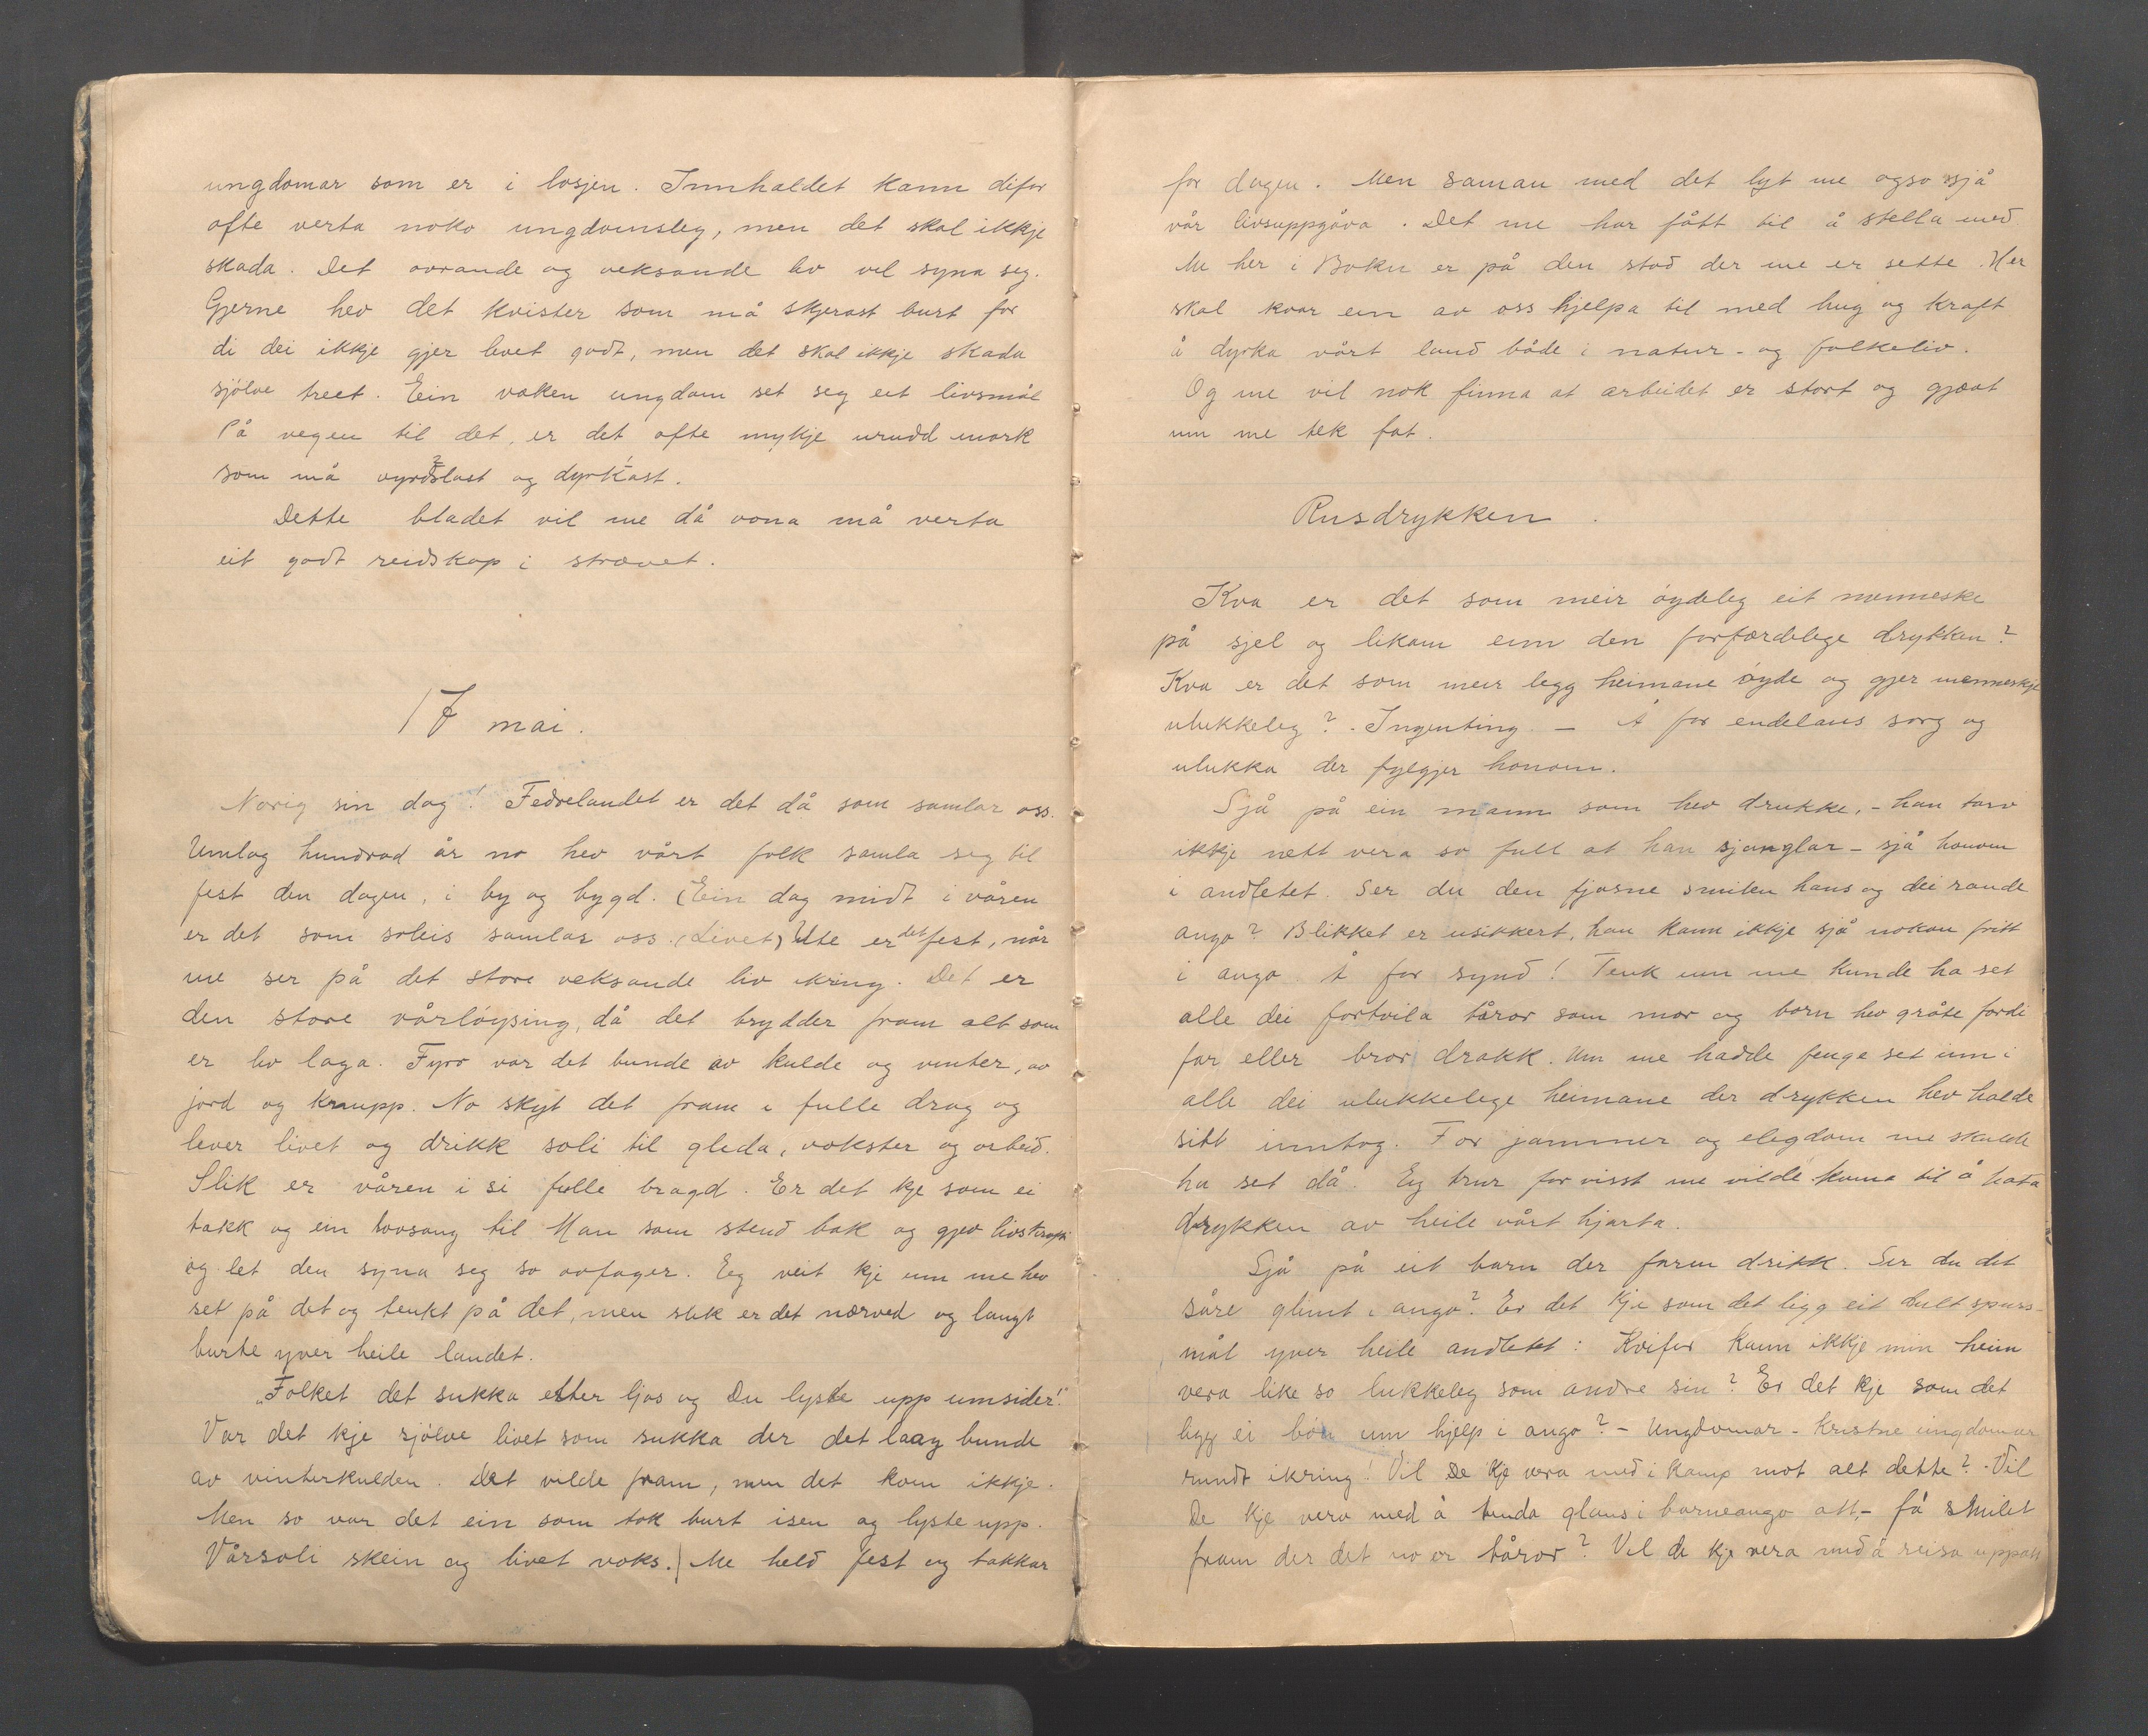 ungdomar som er i losjen. Innhaldet kann difor
ofte verta noko ungdomsleg, men det skal ikkje
skada. Det ovrande og veksande liv vil syna seg.
Gjerne hev det kvister som må skjerast burt for
di dei ikkje gjer livet godt, men det skal ikkje skada
sjölve treet. Ein vaken ungdom set seg eit livsmål
På vegen til det, er det ofte mykje urudd mark
som må vyrdslast og dyrkast.
Dette bladet vil me då vona må verta
eit godt reidskap i strævet.
17 mai.
Norig sin dag! Fedrelandet er det då som samlar oss.
Umlag hundrad år no hev vårt folk samla seg til
fest den dagen, i by og bygd. (Ein dag midt i våren
er det som soleis samlar oss. (Livet) Ute er det fest, når
me ser på det store veksande liv ikring. Det er
den store vårlöysing, då det brydder fram alt som
er liv laga. Fyrr var det bunde av kulde og vinter, av
jord og kraupp. No skyt det fram i fulle drag og
lever livet og drikk soli til gleda, vokster og arbeid.
Slik er våren i si fulle bragd. Er det kje som ei
takk og ein lovsong til Han som stend bak og gjev livskraft
og let den syna seg so ovfager. Eg veit kje um me hev
set på det og tenkt på det, men slik er det nærved og langt
burte yver heile landet.
"Folket det sukka etter ljos og Du lyste upp umsider!"
Var det kje sjölve livet som sukka der det laag bunde
av vinterkulden. Det vilde fram, men det kom ikkje.
Men so var det ein som tok burt isen og lyste upp.
Vårsoli skein og livet voks.) Me held fest og takkar
for dagen. Men saman med det lyt me ogso sjå
vår livsuppgåva. Det me har fått til å stella med.
Me her i Bokn er på den stad der me er sette. Her
skal kvar ein av oss hjelpa til med hug og kraft
å dyrka vårt land både i natur- og folkeliv.
Og me vil nok finna at arbeidet er stort og gjævt
um me tek fat.
Rusdrykken.
Kva er det som meir öydeleg eit menneske
på sjel og likam enn den forfærdelege drykken?
Kva er det som meir legg heimane öyde og gjer menneskje
ulukkeleg? - Ingenting. — Å for endelaus sorg og
ulukka der fylgjer honom.
Sjå på ein mann som hev drukke, - han tarv
ikkje nett vera so full at han sjanglar - sjå honom
i andletet. Ser du den fjorne smilen hans og dei raude
augo? Blikket er usikkert, han kann ikkje sjå nokon fritt
i augo. Å for synd! Tenk um me kunde ha set
alle dei fortvila tåror som mor og born hev gråte fordi
far eller bror drakk. Um me hadde fenge set inn i
alle dei ulukkelege heimane der drykken hev halde
sitt inntog. For jammer og elegdom me skulde
ha set då. Eg trur for visst me vilde koma til å hata
drykken av heile vårt hjarta.
Sjå på eit barn der faren drikk. Ser du det
såre glimt i augo? Er det kje som det ligg eit dult spurs-
mål yver heile andletet: Kvifor kann ikkje min heim
vera like so lukkeleg som andre sin? Er det kje som det
ligg ei bön um hjelp i augo? - Ungdomar - Kristne ungdomar
rundt ikring! Vil De kje vera med i kamp mot alt dette? - Vil
De kje vera med å tenda glans i barneaugo att, - få smilet
fram der det no er tåror? Vil de kje vera med å reisa uppatt